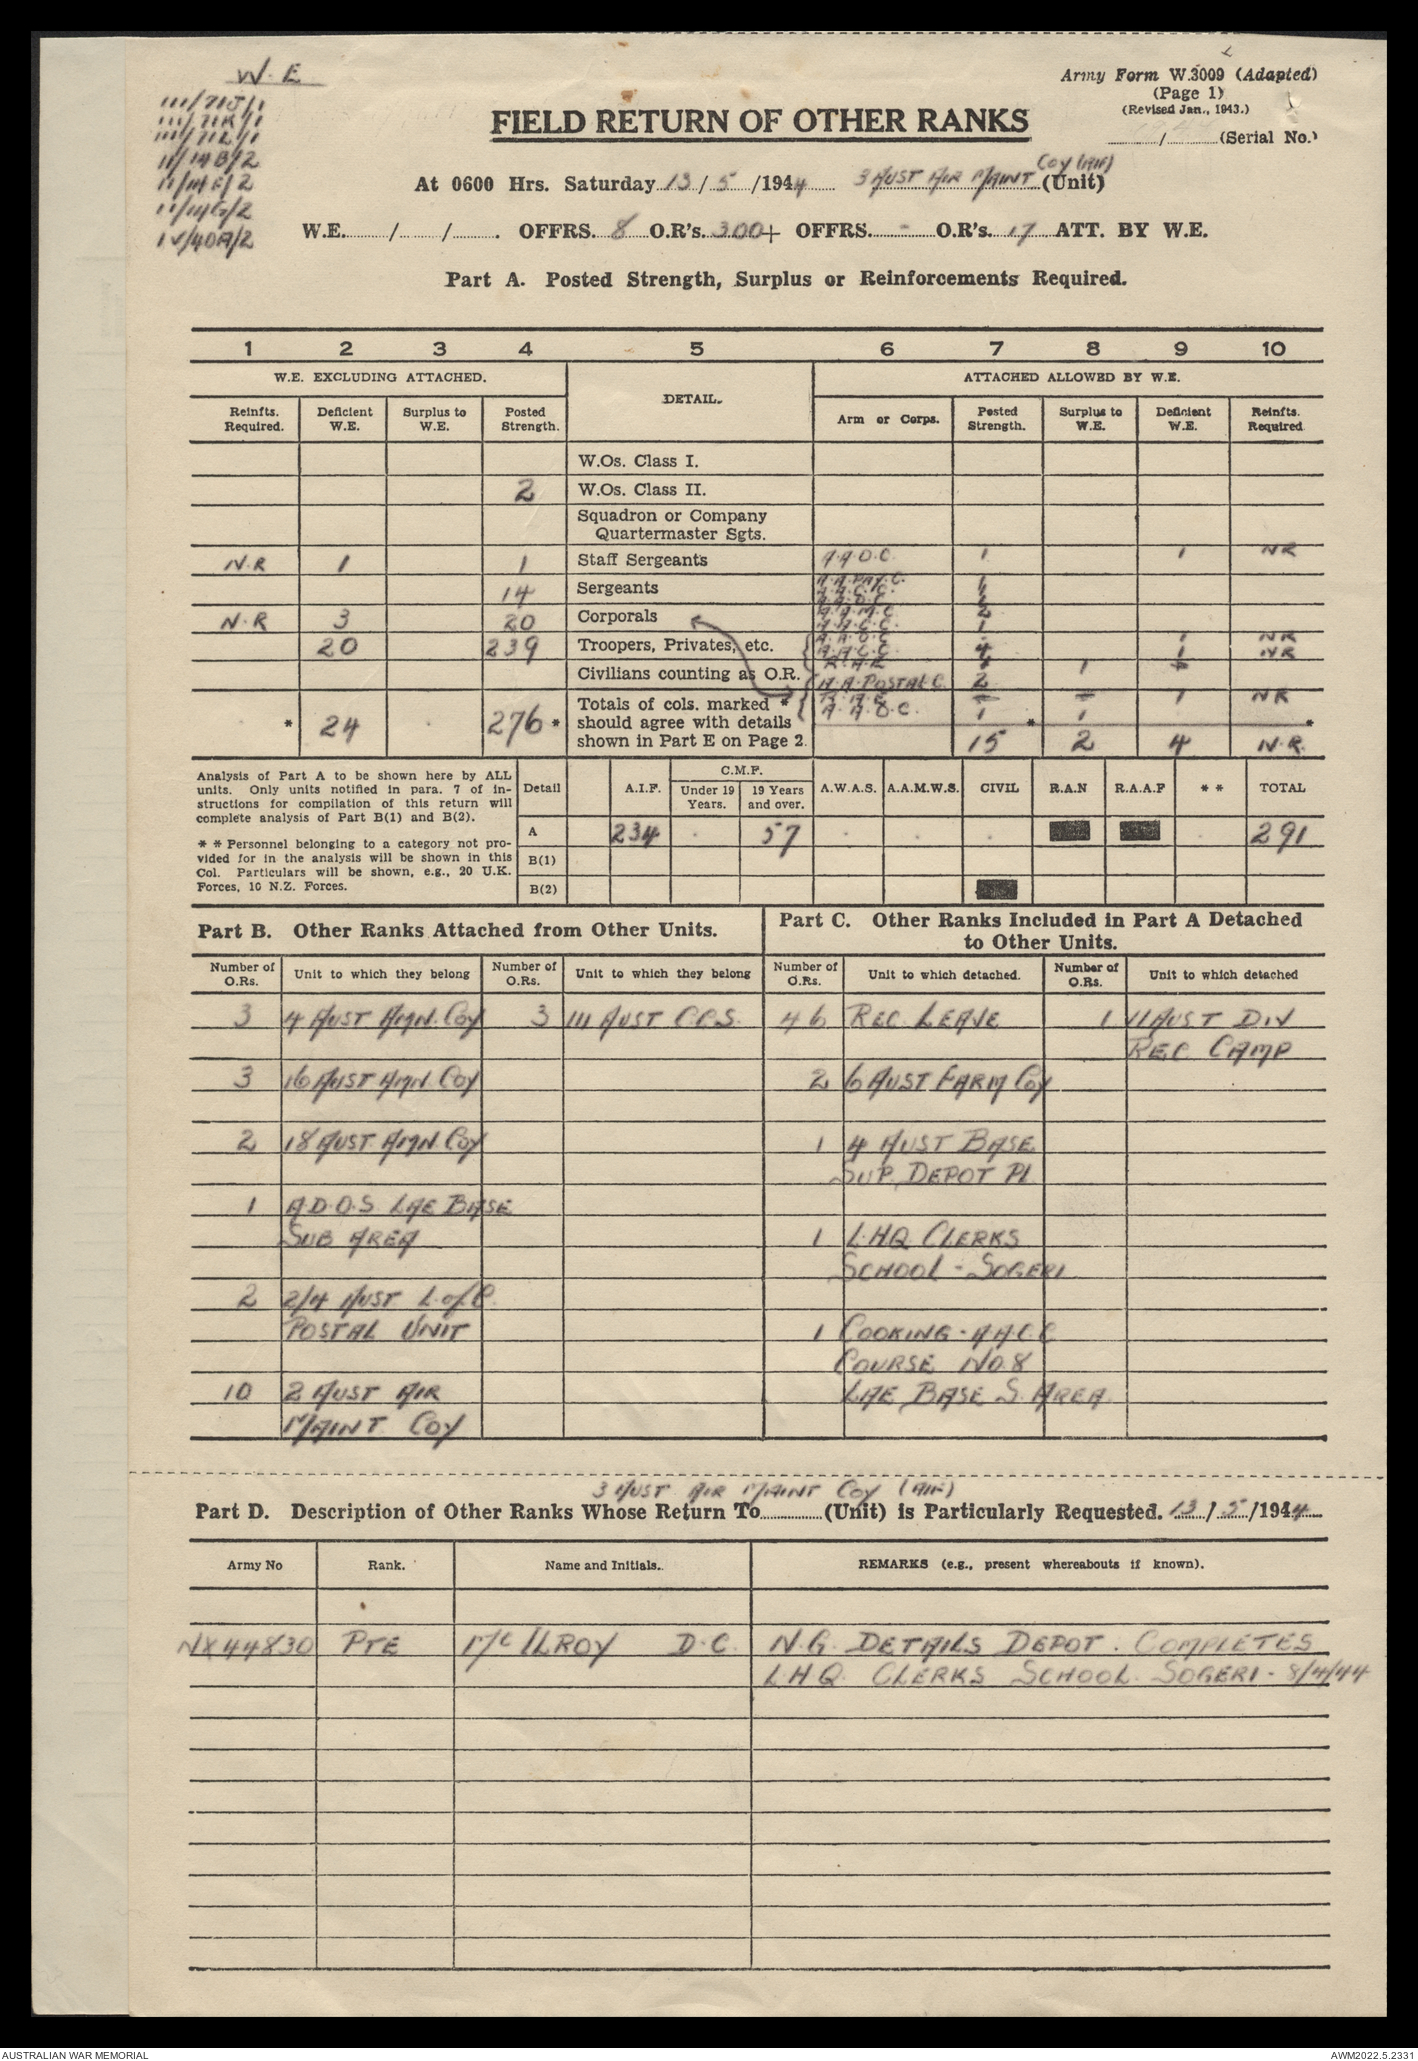 W.E
111/71J/1
111/71K/1
111/71L/1
11/14B/2
11/14E/2
11/14G/2
1V/40A/2
Army Form W.3009 (Adapted)
(Page 1)
(Revised Jan., 1943.)
/ (Serial No.)
FIELD RETURN OF OTHER RANKS
At 0600 Hrs. Saturday 13 / 5 /1944 3 AUST AIR MAINT COY (AIF) (Unit)
W.E. / / . OFFRS. 8 O.R's. 300 + OFFRS. - O.R's. 17 ATT. BY W.E.
Part A. Posted Strength, Surplus or Reinforcements Required.
1 2 3 4 5 6 7 8 9 10
W.E. EXCLUDING ATTACHED. DETAIL. ATTACHED ALLOWED BY W.E.
Reinfts. Required. Deficient W.E. Surplus to W.E. Posted Strength. Arm or Corps. Posted Strength. Surplus to W.E. Deficient W.E. Reinfts. Required
W.Os. Class I.
2 W.Os. Class II.
Squadron or Company
Quartermaster Sgts.
N.R 1 1 Staff Sergeants A.A.O.C. 1 1 NR
14 Sergeants A.A.PAY.C. 1
A.A.C.C.
N.R 3 20 Corporals A.A.M.C. 2
A.A.C.C. 1
20 239 Troopers, Privates, etc. A.A.O.C. - 1 NR
A.A.C.C. 4 1 NR
Civilians counting as O.R. R.A.E. 1
A.A.POSTAL.C. 2
Totals of cols. marked * R.A.E. 1 NR
* 24 276 * should agree with details A.A.O.C. 1 * 1 *
shown in Part E on Page 2. 15 2 4 N.R.
Analysis of Part A to be shown here by ALL
units. Only units notified in para. 7 of in-
structions for compilation of this return will
complete analysis of Part B(1) and B(2).
* * Personnel belonging to a category not pro-
vided for in the analysis will be shown in this
Col. Particulars will be shown, e.g., 20 U.K.
Forces, 10 N.Z. Forces.
Detail A.I.F. C.M.F. Under 19 Years. 19 Years and over. A.W.A.S. A.A.M.W.S. CIVIL R.A.N R.A.A.F * * TOTAL
A 234 . 57 . . . . 291
B(1)
B(2)
Part B. Other Ranks Attached from Other Units.
Number of O.Rs. Unit to which they belong Number of O.Rs. Unit to which they belong
3 4 AUST AMN. COY 3 111 AUST C.C.S.
3 16 AUST AMN. COY
2 18 AUST. AMN. COY
1 A.D.O.S. LAE BASE
SUB AREA
2 2/4 AUST L.of.C.
POSTAL UNIT
10 2 AUST AIR
MAINT. COY
Part C. Other Ranks Included in Part A Detached
to Other Units.
Number of O.Rs. Unit to which detached. Number of O.Rs. Unit to which detached
46 REC. LEAVE 1 11 AUST DIV
REC CAMP
2 6 AUST FARM COY
1 4 AUST BASE
SUP. DEPOT Pl.
1 L.HQ. CLERKS
SCHOOL - SOGERI
1 COOKING - A.A.C.C
COURSE NO.8
LAE BASE S. AREA.
3 AUST AIR MAINT COY (AIF)
Part D. Description of Other Ranks Whose Return To (Unit) is Particularly Requested. 13 / 5 /1944
Army No Rank. Name and Initials. REMARKS (e.g., present whereabouts if known).
NX44830 PTE McILROY D.C. N.G. DETAILS DEPOT. COMPLETES
L.HQ. CLERKS SCHOOL. SOGERI - 8/4/44
AUSTRALIAN WAR MEMORIAL AWM2022.5.2331